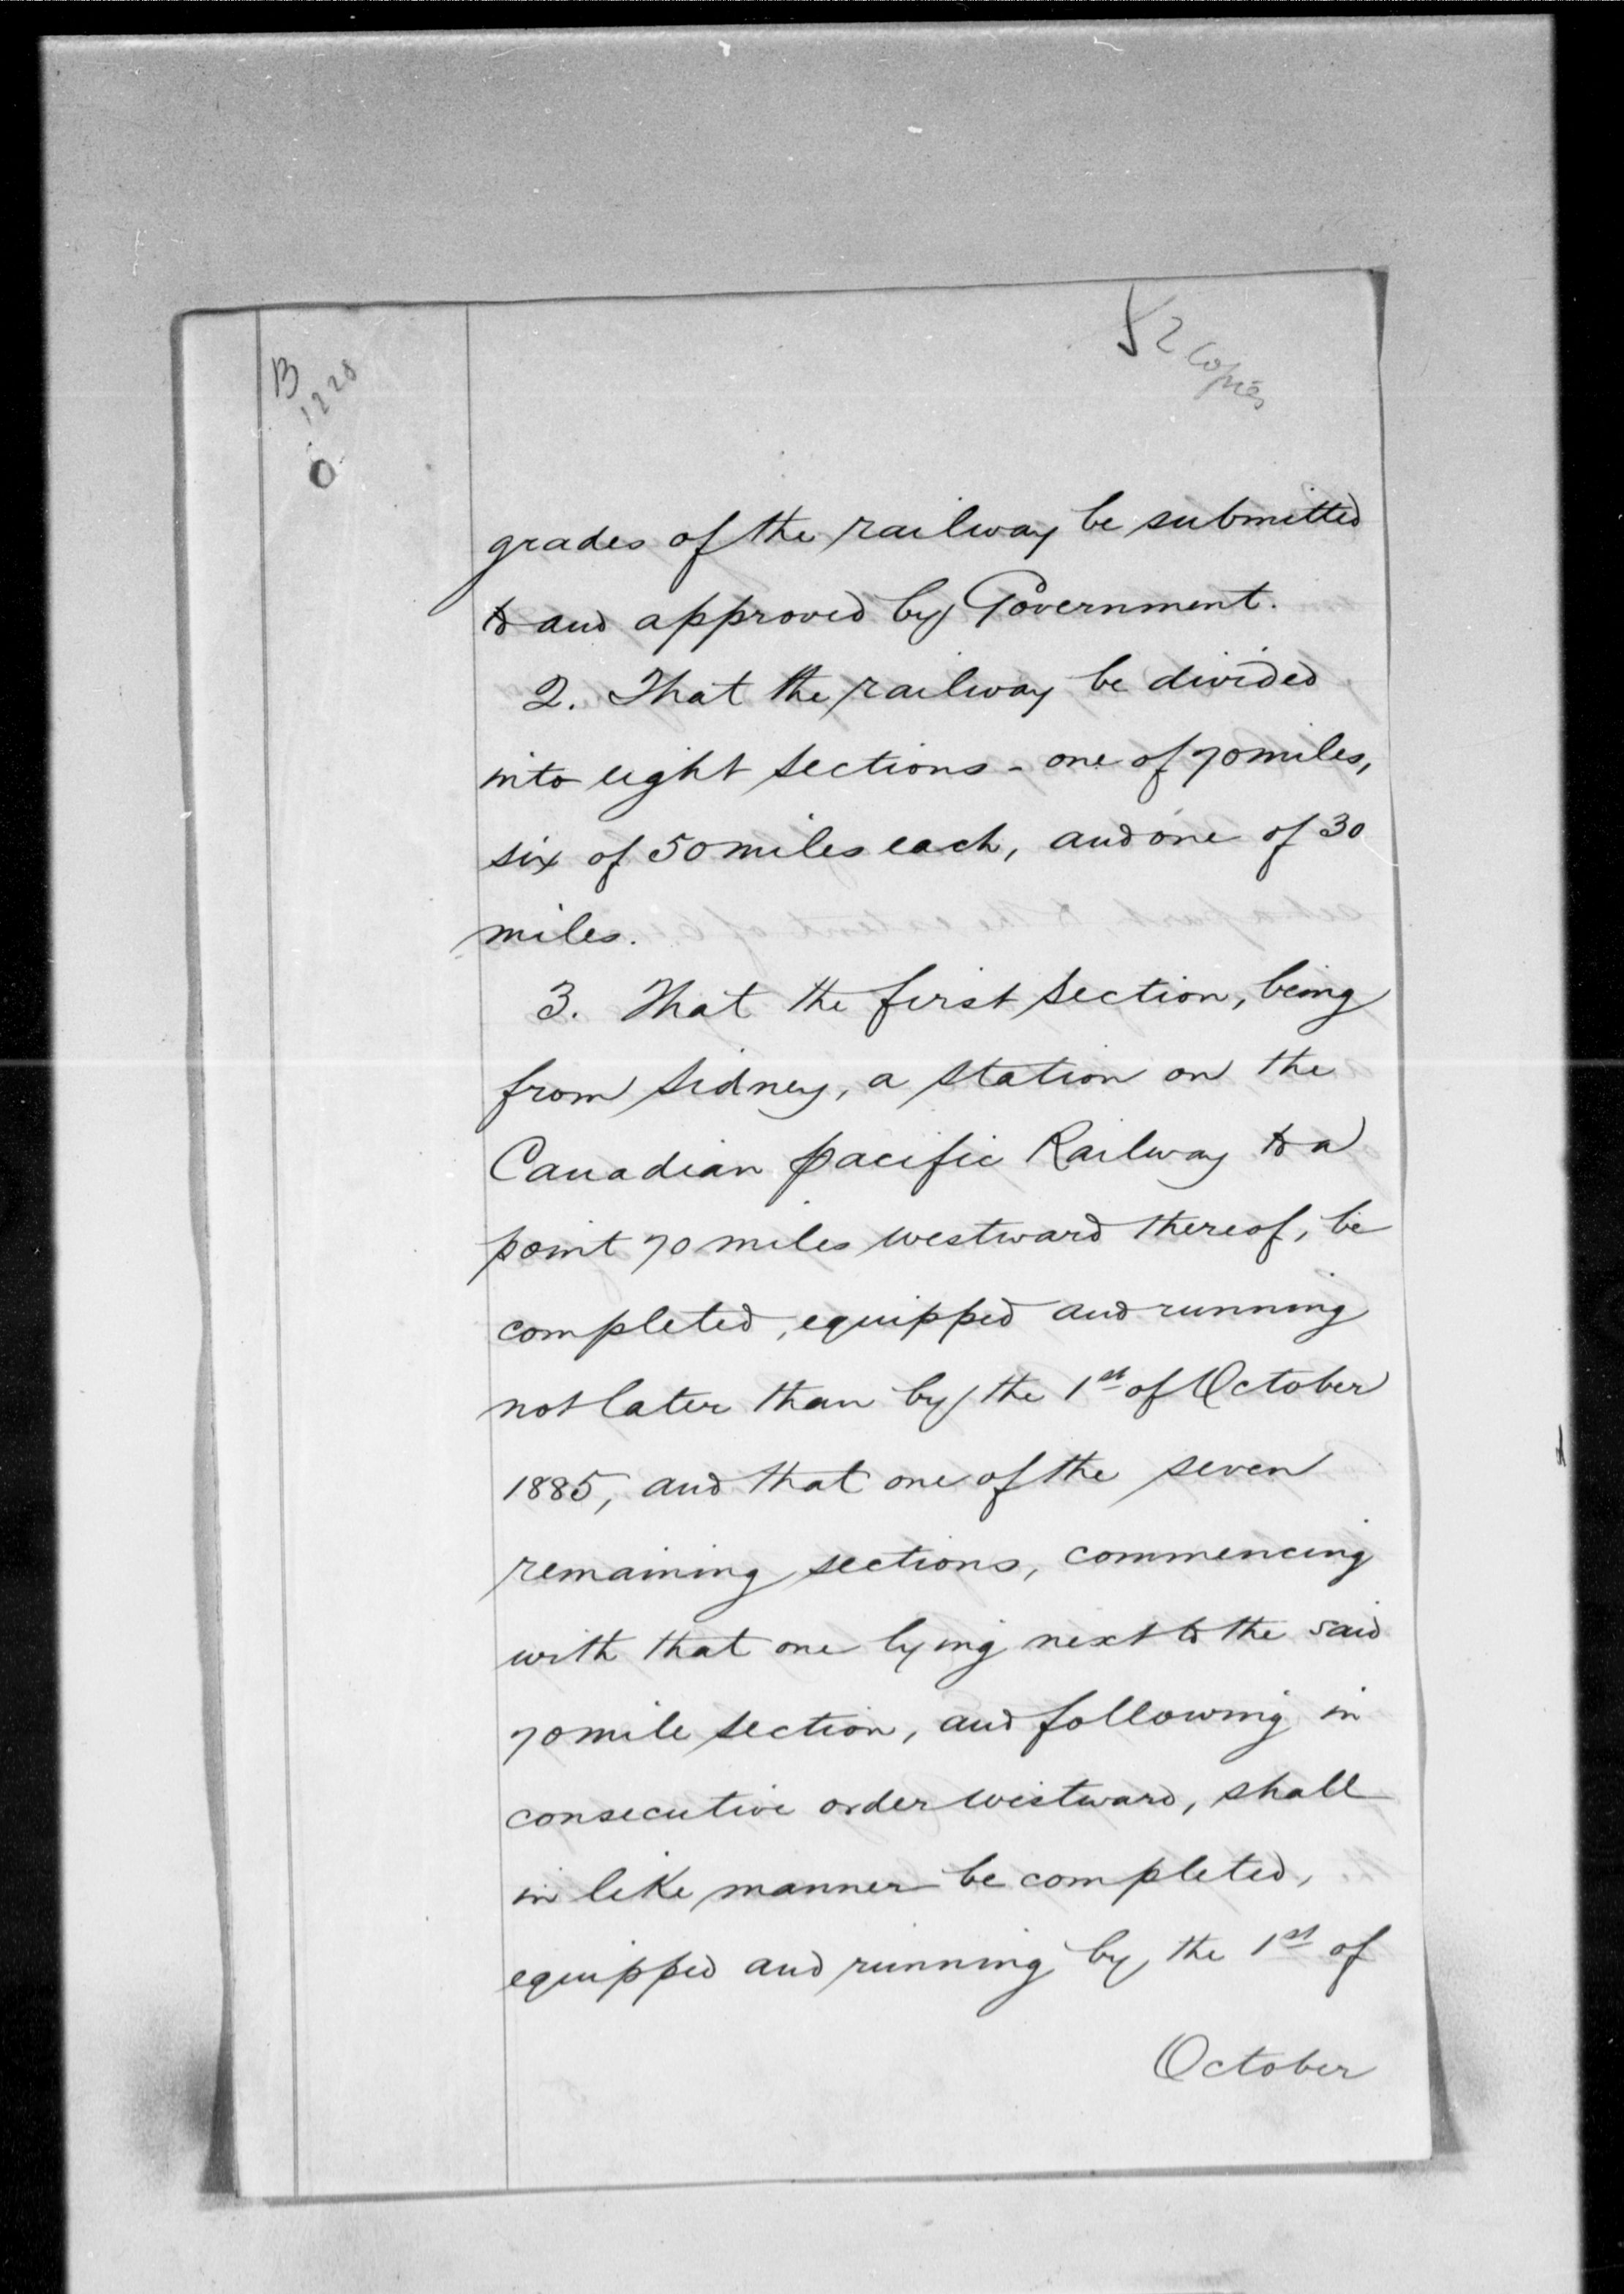 B
1228
0
2 Copies
grades of the railway be submitted
to and approved by Government.
2. That the railway be divided
into eight sections - one of 70 miles,
six of 50 miles each, and one of 30
miles.
3. That the first section, being
from Sidney, a station on the
Canadian pacific Railway to a
point 70 miles westward thereof, be
completed, equipped and running
not later than by the 1st of October
1885, and that one of the seven
remaining sections, commencing
with that one lying next to the said
70 mile section, and following in
consecutive order westward, shall
in like manner be completed,
equipped and running by the 1st of
October